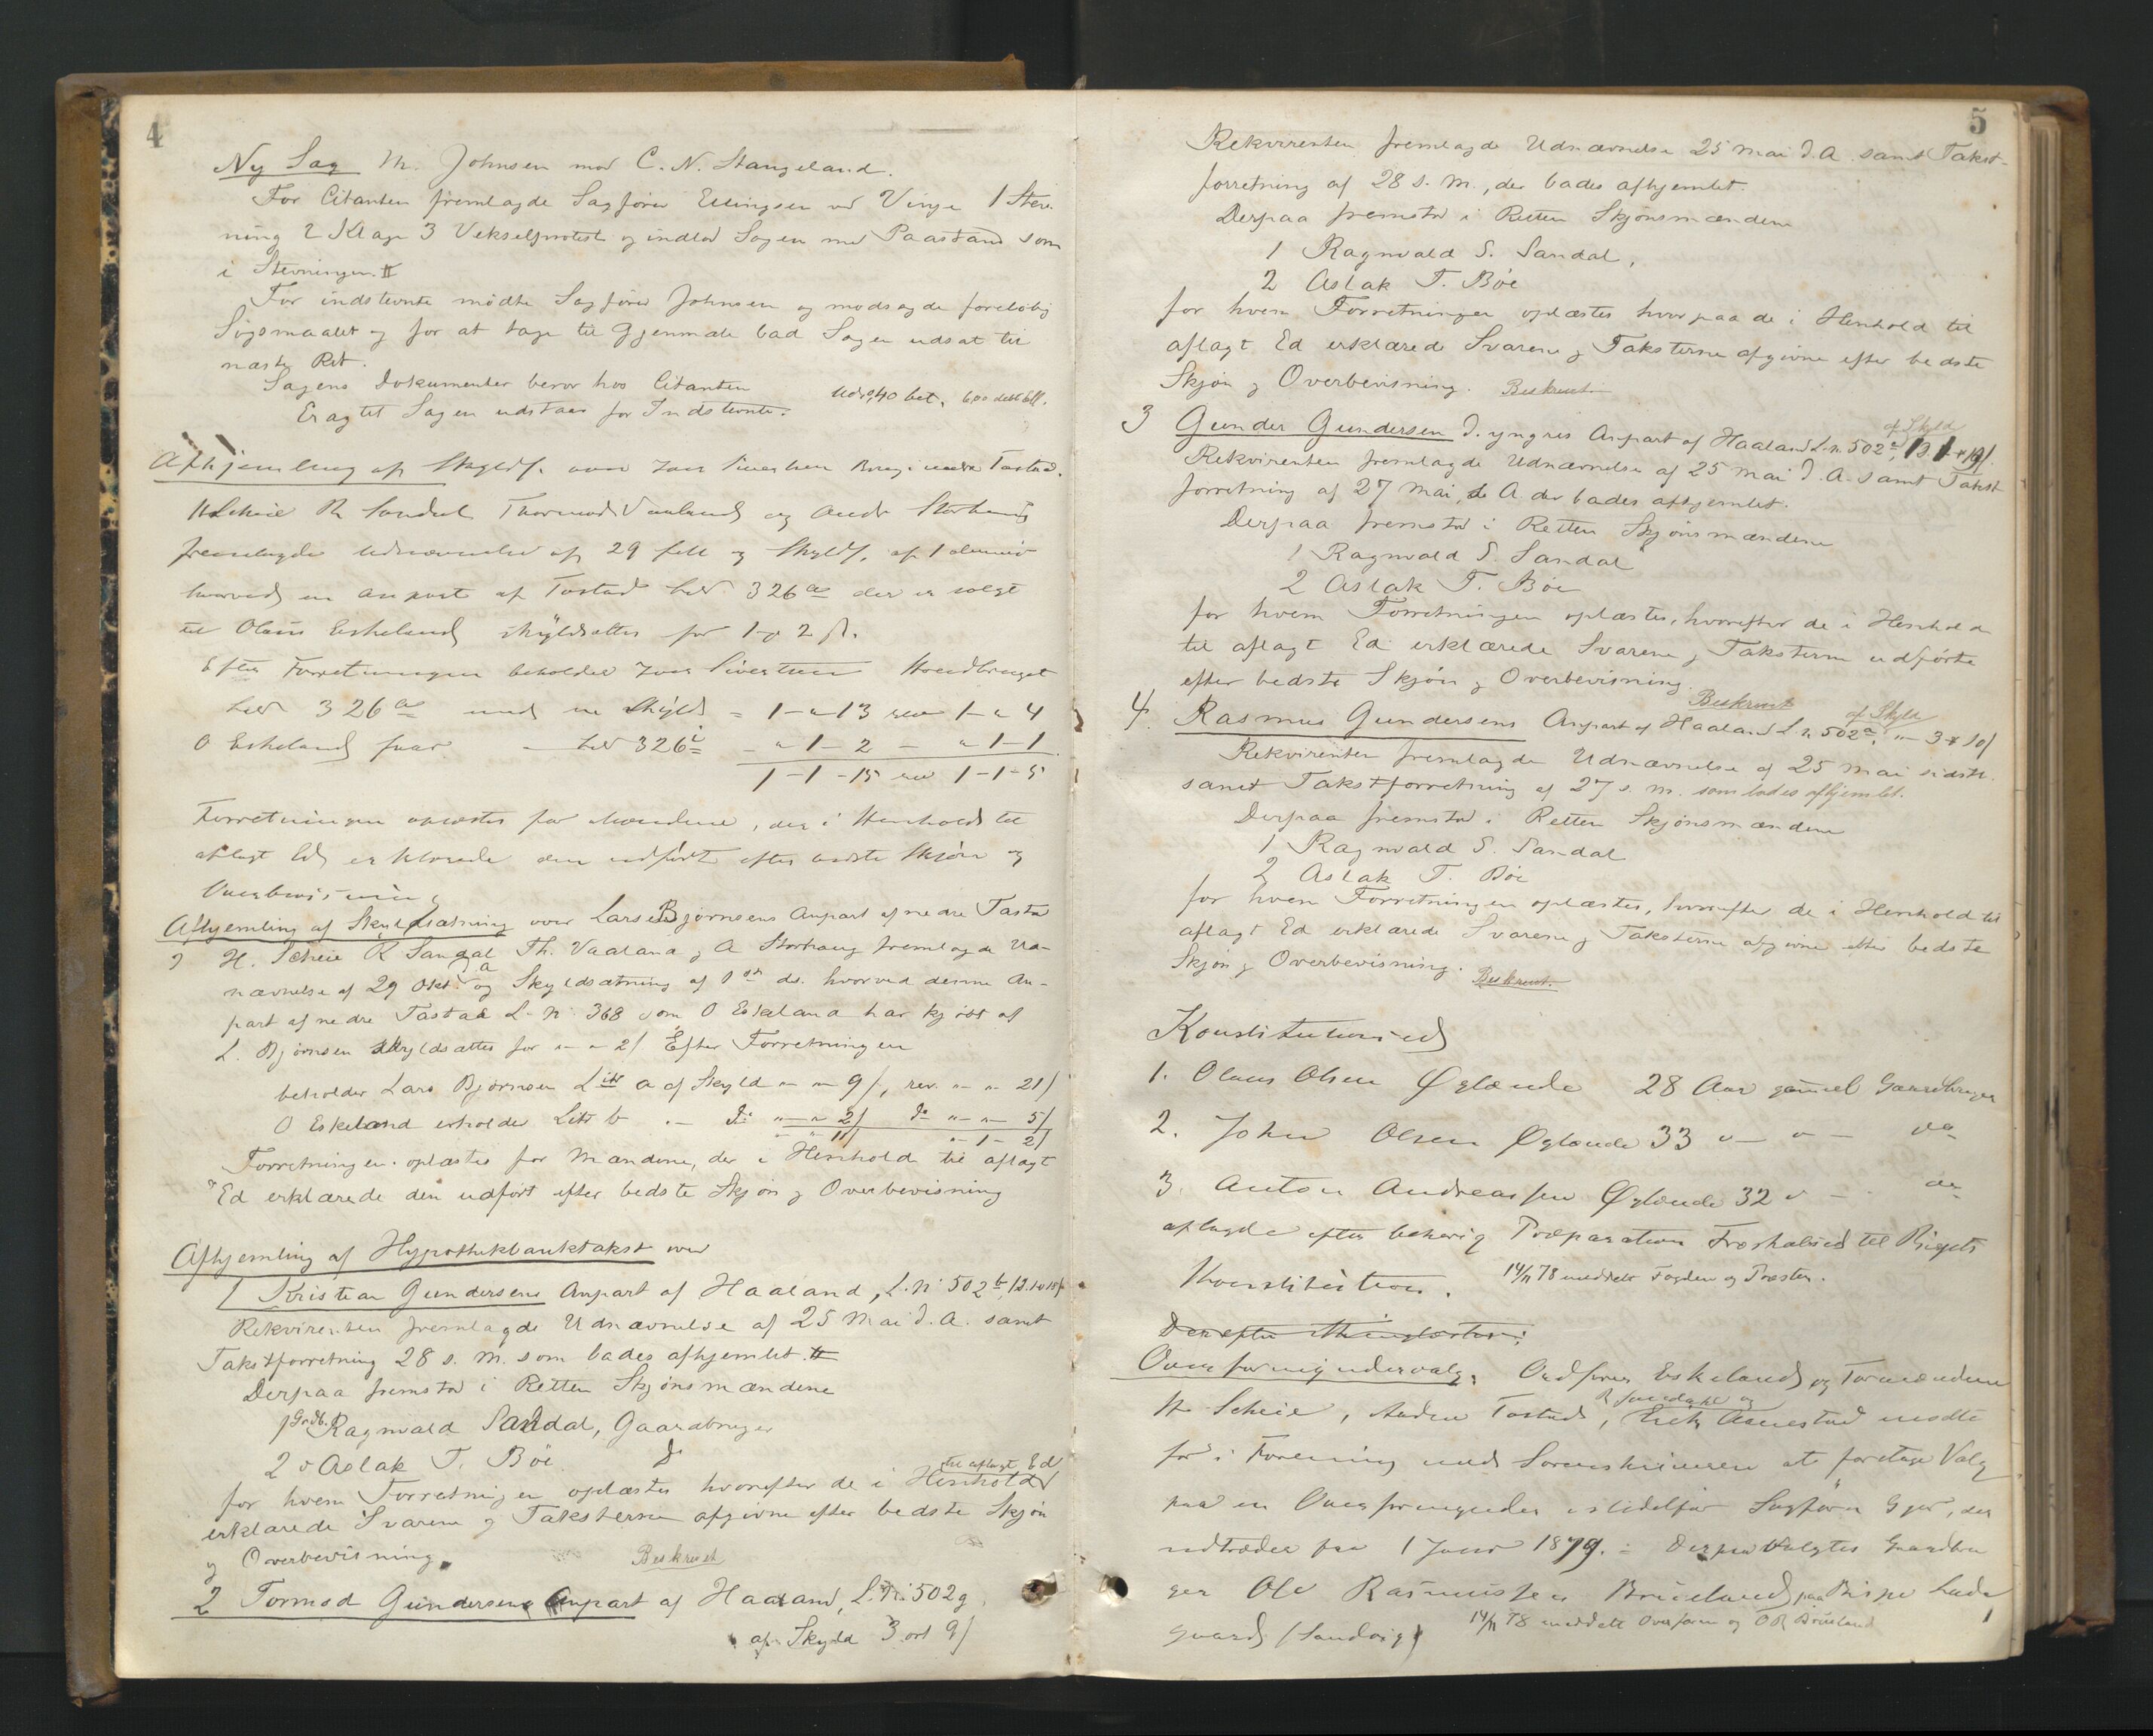 4
Ny Sag M. Johnsen mod C. N. Stangeland.
For Citanten fremlagde Sagfører Ellingsen ved Vinge 1 Stev-
ning 2 Klage 3 Vekselprotest og indlod Sagen med Paastand som
i Stevningen.
For indstevnte mødte Sagfører Johnsen og modsagde foreløbig
Søgsmaalet og for at tage til Gjenmæle bad Sagen udsat til
næste Ret.
Sagens Dokumenter beror hos Citanten
Eragtet Sagen udstaar for Indstevnte.
Afhjemling af Skyldf. over Ivar Sivertsen Brug i nedre Tastad.
H Scheie R Sandal Thormod Vaaland og Andr Storhaug
fremlagde Udnævnelse af 29 og Skyldf. af 1
hvorved en Anpart af Tastad 326 a der er solgt
til Olaus Eskeland skyldsattes for 1 2 s.
Efter Forretningen beholder Ivar Sivertsen Hovedbruget
326 a med en Skyld = 1 - " 13 rev 1 - " 4
O Eskeland faar 326 c - " 1 - 2 - " 1 - 1
1 - 1 - 15 rev 1 - 1 - 5
Forretningen oplæstes for Mændene, der i Henhold til
aflagt Ed erklærede den udført efter bedste Skjøn og
Overbevisning
Afhjemling af Skyldsætning over Lars Bjørnsens Anpart af nedre Tastad
H. Scheie R Sandal Th. Vaaland og A Storhaug fremlagde Ud-
nævnelse af 29 Okt. og Skyldsætning af 1 ds. hvorved denne An-
part af nedre Tastad L. n. 368 som O Eskeland har kjøbt af
L. Bjørnsen skyldsattes for " - " 2/ Efter Forretningen
beholder Lars Bjørnsen Litr a af Skyld " - " 9/, rev. " - " 21/
O Eskeland erholder Litr b - do " - " 2/ do " - " 5/
" " 11/ " - 1 - 2/
Forretningen oplæstes for Mændene, der i Henhold til aflagt
Ed erklærede den udført efter bedste Skjøn og Overbevisning
Afhjemling af Hypothekbanktakst over
1 Kristian Gundersens Anpart af Haaland, L. n: 502 b,
Rekvirenten fremlagde Udnævnelse af 25 Mai d. A. samt
Takstforretning 28 s. M. som bades afhjemlet.
Derpaa fremstod i Retten Skjønsmændene
1 Grdb. Ragnvald Sandal, Gaardbruger
2 do Aslak T. Bøe do
for hvem Forretningen oplæstes hvorefter de i Henhold til aflagt Ed
erklærede Svarene og Taksterne afgivne efter bedste Skjøn
og Overbevisning. Beskrevet
2 Tormod Gundersens Anpart af Haaland, L. Nr: 502 g
af Skyld 3 ort 9/
5
Rekvirenten fremlagde Udnævnelse 25 Mai d. A. samt Takst-
forretning af 28 s. M., der bades afhjemlet.
Derpaa fremstod i Retten Skjønsmændene
1 Ragnvald S. Sandal,
2 Aslak T. Bøe
for hvem Forretningen oplæstes hvorpaa de i Henhold til
aflagt Ed erklærede Svarene og Taksterne afgivne efter bedste
Skjøn og Overbevisning. Beskrevet
3 Gunder Gundersen d. yngres Anpart af Haaland L. n. 502 af Skyld
Rekvirenten fremlagde Udnævnelse af 25 Mai d. A. samt Takst
forretning af 27 Mai, d. A der bades afhjemlet.
Derpaa fremstod i Retten Skjønsmændene
1 Ragnvald S. Sandal
2 Aslak T. Bøe
for hvem Forretningen oplæstes, hvorefter de i Henhold
til aflagt Ed erklærede Svarene og Taksterne udførte
efter bedste Skjøn og Overbevisning. Beskrevet
4. Rasmus Gundersens Anpart af Haaland L. n. 502 a, af Skyld " - 3 - 10/
Rekvirenten fremlagde Udnævnelse af 25 Mai sidstl.
samt Takstforretning af 27 s. M. som bades afhjemlet.
Derpaa fremstod i Retten Skjønsmændene
1 Ragnvald S. Sandal
2 Aslak T. Bøe
for hvem Forretningen oplæstes, hvorefter de i Henhold til
aflagt Ed erklærede Svarene og Taksterne afgivne efter bedste
Skjøn og Overbevisning. Beskrevet.
Konstitutionsed
1. Olaus Olsen Øglænde 28 Aar gammel Gaardbruger
2. John Olsen Øglænde 33 " - " - do
3. Anton Andreassen Øglænde 32 " - do
aflagde efter behørig Præparation Troskabsed til Rigets
Konstitution. 14/11 78 meddelt Fogden og Presten.
Derefter thinglæstes:
Overformyndervalg. Ordfører Eskeland og Formændene
H Scheie, Anders Tastad, R Sandahl og Erik Aanestad mødte
for i Forening med Sorenskriveren at foretage Valg
paa en Overformynder istedetfor Sagfører Gjør, der
udtræder fra 1 Januar 1879. - Derpaa valgtes Gaardbru
ger Ole Rasmussen Brueland paa Bispeladegaard
gaard (Sandvig) 14/11 78 meddelt Overform og O R Brueland